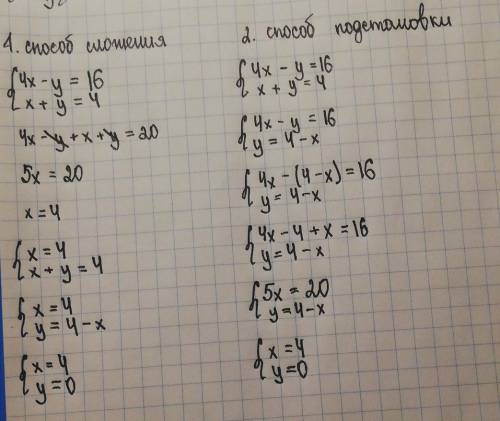 1. способ сложения
{4x - y = 16
x + y = 4
4x - y + x + y = 20
5x = 20
x = 4
{x = 4
x + y = 4
{x = 4
y = 4 - x
{x = 4
y = 0
2. способ подстановки
{4x - y = 16
x + y = 4
{4x - y = 16
y = 4 - x
{4x - (4 - x) = 16
y = 4 - x
{4x - 4 + x = 16
y = 4 - x
{5x = 20
y = 4 - x
{x = 4
y = 0